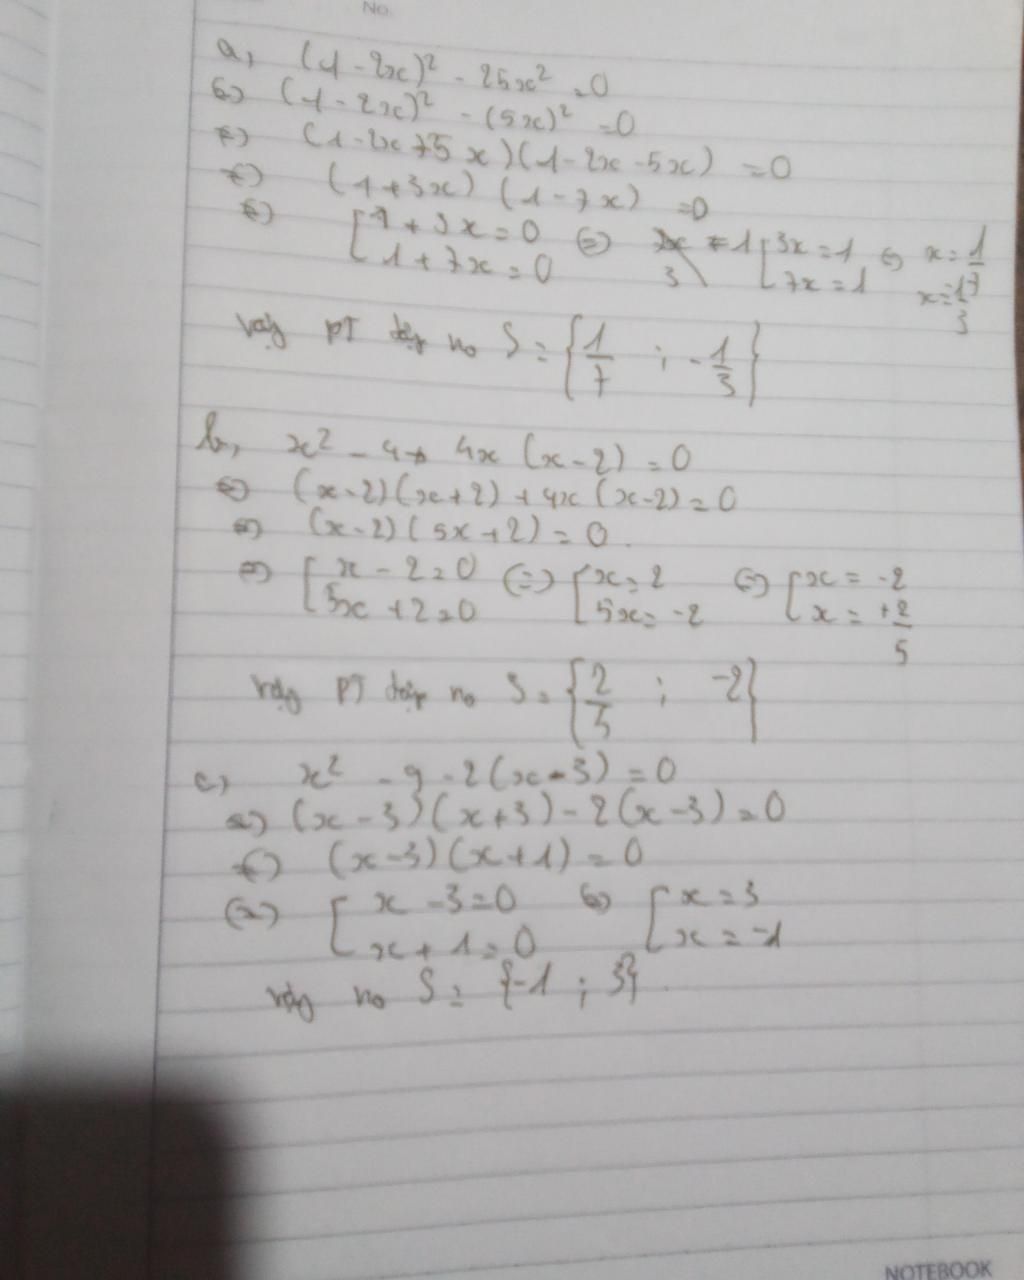 No.
a, (1-2x)² - 25x² = 0
⇔ (1-2x)² - (5x)² = 0
⇔ (1-2x+5x)(1-2x-5x) = 0
⇔ (1+3x)(1-7x) = 0
⇔ [1+3x=0 ⇔ [3x=1 ⇔ x=1/7
[1+7x=0 [7x=1 x=-1/3
Vậy PT tập no S = {1/7 ; -1/3}
b, x² - 4 + 4x(x-2) = 0
⇔ (x-2)(x+2) + 4x(x-2) = 0
⇔ (x-2)(5x+2) = 0.
⇔ [x-2=0 ⇔ [x=2 ⇔ [x=-2
[5x+2=0 [5x=-2 [x=+2/5
Vậy PT tập no S = {2/5 ; -2}
c, x² - 9 - 2(x-3) = 0
⇔ (x-3)(x+3) - 2(x-3) = 0
⇔ (x-3)(x+1) = 0
⇔ [x-3=0 ⇔ [x=3
[x+1=0 [x=-1
Vậy no S = {-1 ; 3}.
NOTEBOOK